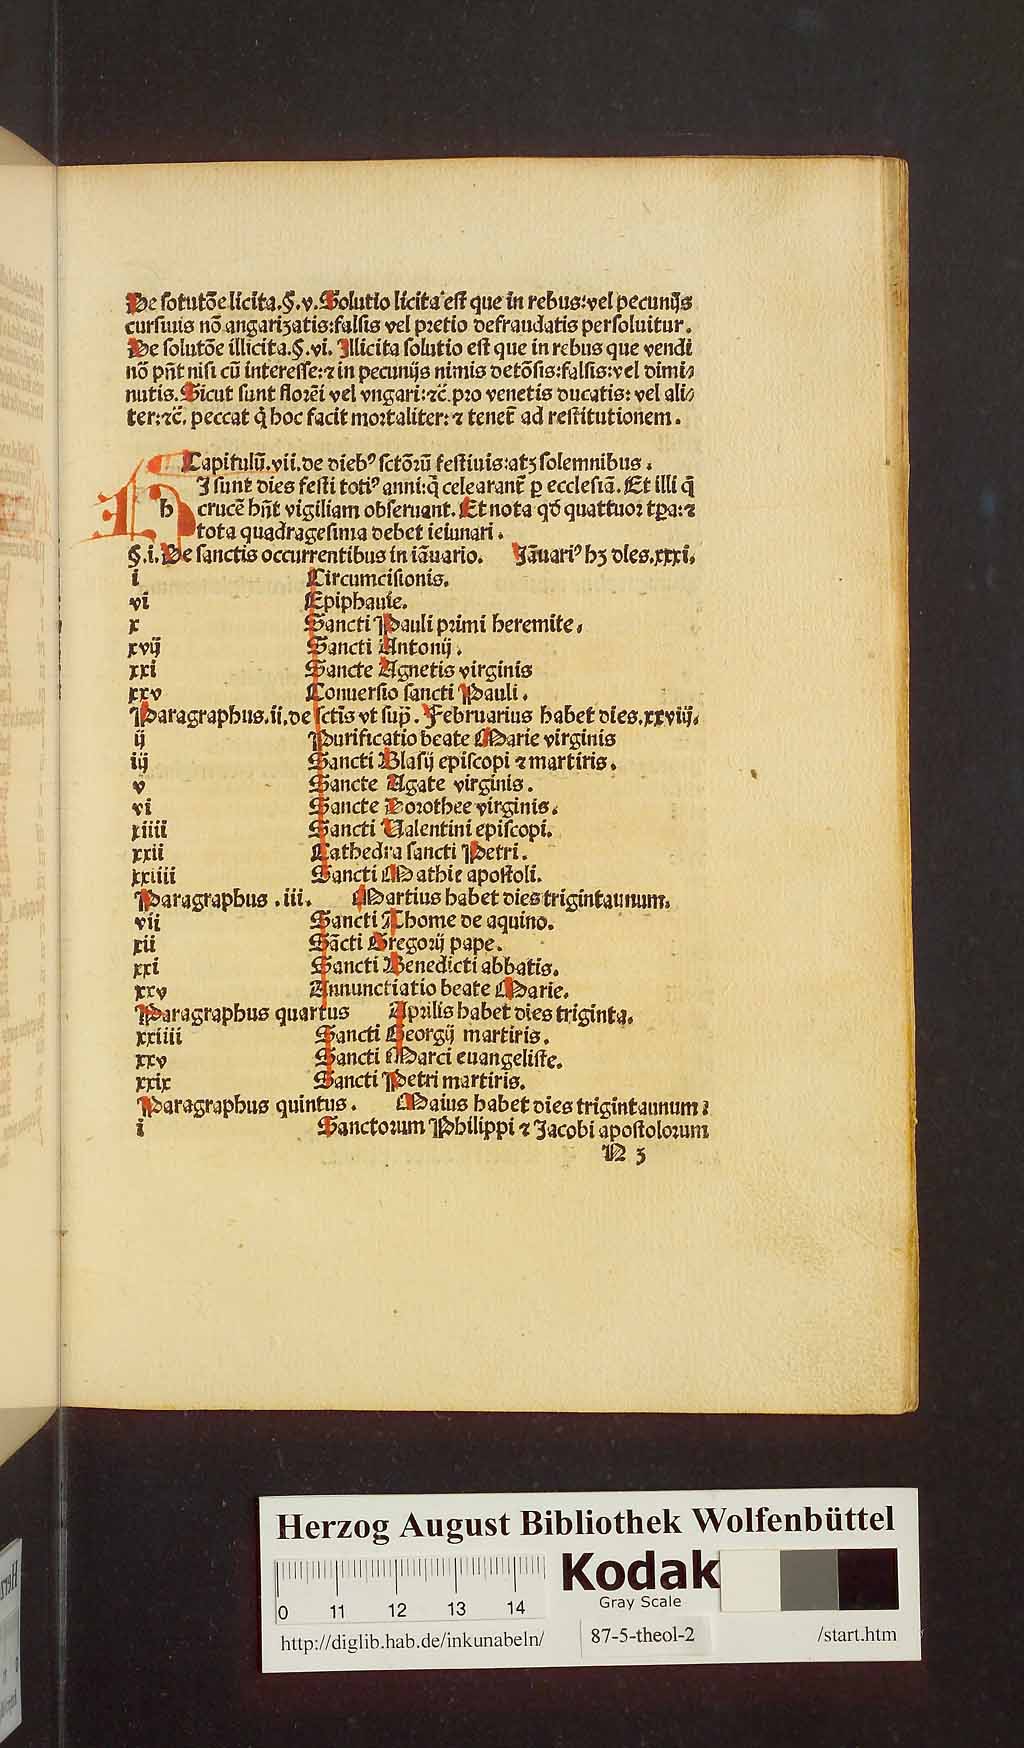 De sotutōe licita.§.v. Solutio licita est que in rebus: vel pecunijs
cursuuis nō angarizatis: falsis vel pretio defraudatis persoluitur.
De solutōe illicita.§.vi. Illicita solutio est que in rebus que vendi
nō pn̄t nisi cū interesse: ⁊ in pecunijs nimis detōsis: falsis: vel dimi⸗
nutis. Sicut sunt florēi vel vngari: ⁊c̄. pro venetis ducatis: vel ali⸗
ter: ⁊c̄. peccat q̇ hoc facit mortaliter: ⁊ tenet̄ ad restitutionem.
Capitulū.vii.de diebꝰ sctōrū festiuis: atqꝫ solemnibus.
h I sunt dies festi totiꝰ anni: q̄ celearant̄ ꝑ ecclesiā. Et illi q̄
crucē hn̄t vigiliam obseruant. Et nota qd̓ quattuor tꝑa: ⁊
tota quadragesima debet ieiunari.
§.i. De sanctis occurrentibus in iāuario. Iāuariꝰ hꝫ dies.xxxi.
i Circumcisionis.
vi Epiphauie.
x Sancti Pauli primi heremite.
xvij Sancti Antonij.
xxi Sancte Agnetis virginis
xxv Conuersio sancti Pauli.
Paragraphus.ii.de sctīs vt sup̄. Februarius habet dies.xxviij.
ij Purificatio beate Marie virginis
iij Sancti Blasij episcopi ⁊ martiris.
v Sancte Agate virginis.
vi Sancte Dorothee virginis.
xiiii Sancti Valentini episcopi.
xxii Cathedra sancti Petri.
xxiiii Sancti Mathie apostoli.
Paragraphus .iii. Martius habet dies trigintaunum.
vii Sancti Thome de aquino.
xii Sācti Gregorij pape.
xxi Sancti Benedicti abbatis.
xxv Annunctiatio beate Marie.
Paragraphus quartus Aprilis habet dies triginta.
xxiiii Sancti Georgij martiris.
xxv Sancti Marci euangeliste.
xxix Sancti Petri martiris.
Paragraphus quintus. Maius habet dies trigintaunum:
i Sanctorum Philippi ⁊ Jacobi apostolorum
N 3
Herzog August Bibliothek Wolfenbüttel
Kodak
Gray Scale
0 11 12 13 14
http://diglib.hab.de/inkunabeln/ 87-5-theol-2 /start.htm